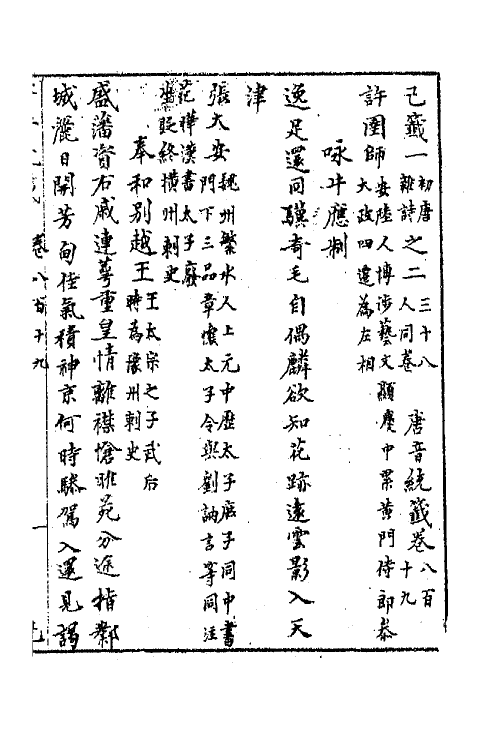 己籤一 初唐雜詩 之二 三十八人同卷 唐音統籤卷八百十九
許圉師 安陸人博涉藝文顯慶中累黃門侍郎參大政四遷為左相
咏牛應制
逸足還同驥奇毛自偶麟欲知花跡遠雲影入天
津
張大安 魏州繁水人上元中歷太子庶子同中書門下三品章懷太子令與劉訥言等同注
范曄漢書太子廢坐貶終橫州刺史
奉和別越王 王太宗之子武后時為豫州刺史
盛藩資右戚連萼重皇情離襟愴睢苑分途指鄴
城麗日開芳甸佳氣積神京何時驂駕入還見謁
卷八百十九 一